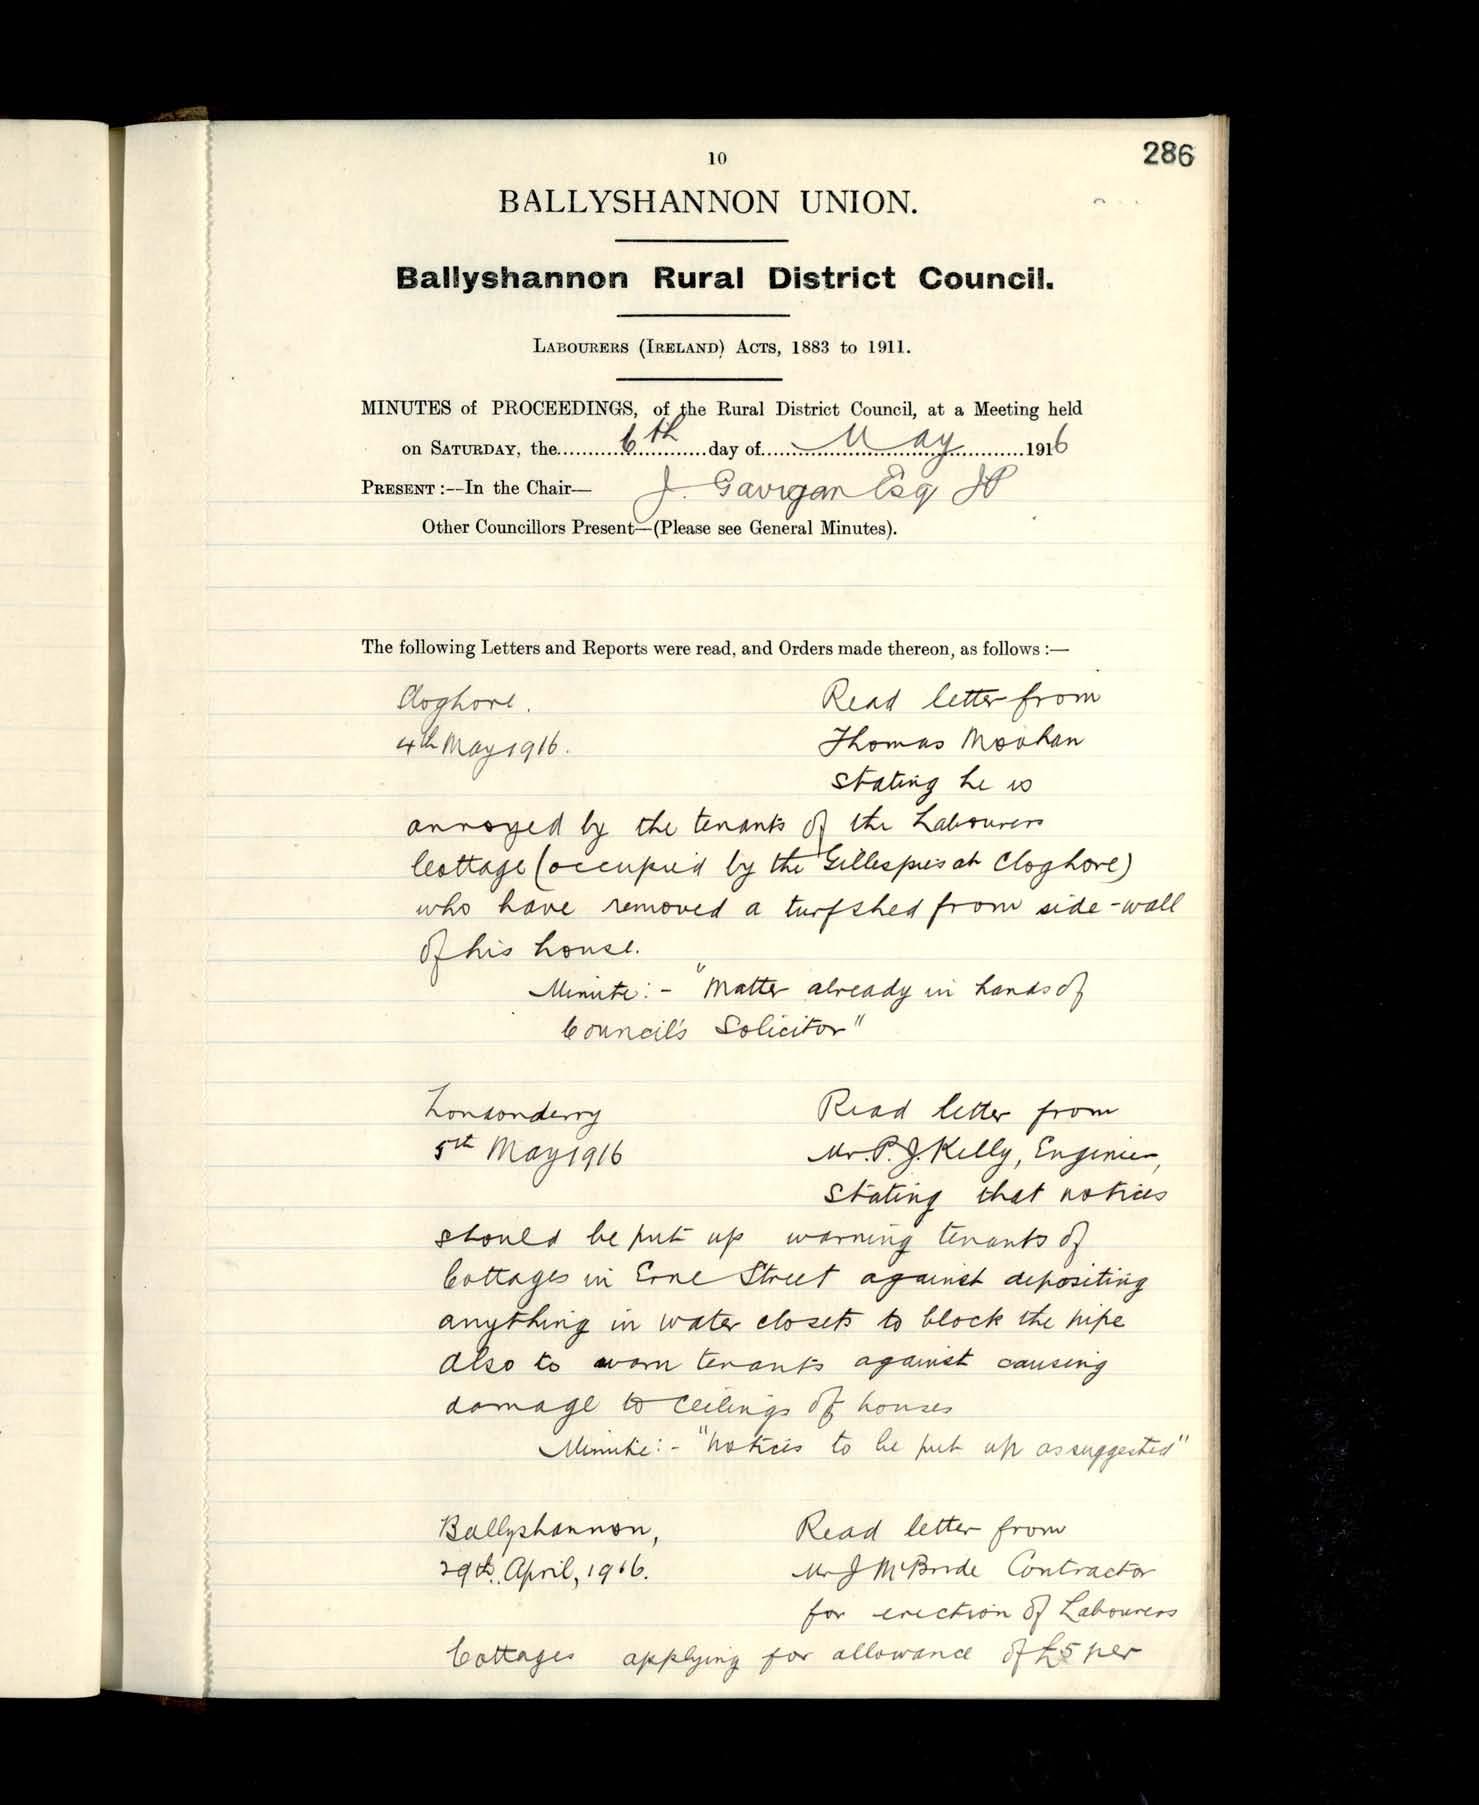 286
10
BALLYSHANNON UNION.
Ballyshannon Rural District Council.
LABOURERS (IRELAND) ACTS, 1883 to 1911.
MINUTES of PROCEEDINGS, of the Rural District Council, at a Meeting held
on SATURDAY, the............6th............day of......May......1916
PRESENT :—In the Chair— J. Gavigan Esq JP
Other Councillors Present—(Please see General Minutes).
The following Letters and Reports were read, and Orders made thereon, as follows :—
Cloghore. Read letter from
4th May 1916. Thomas Moohan
stating he is
annoyed by the tenants of the Labourers
Cottage (occupied by the Gillespies at Cloghore)
who have removed a turfshed from side-wall
of his house.
Minute:- "Matter already in hands of
Council's Solicitor"
Londonderry Read letter from
5th May 1916 Mr. P. J. Kelly, Engineer,
stating that notices
should be put up warning tenants of
Cottages in Erne Street against depositing
anything in water closets to block the pipe
also to warn tenants against causing
damage to ceilings of houses
Minute:- "Notices to be put up as suggested"
Ballyshannon, Read letter from
29th. April, 1916. Mr J McBride Contractor
for erection of Labourers
Cottages applying for allowance of £5 per